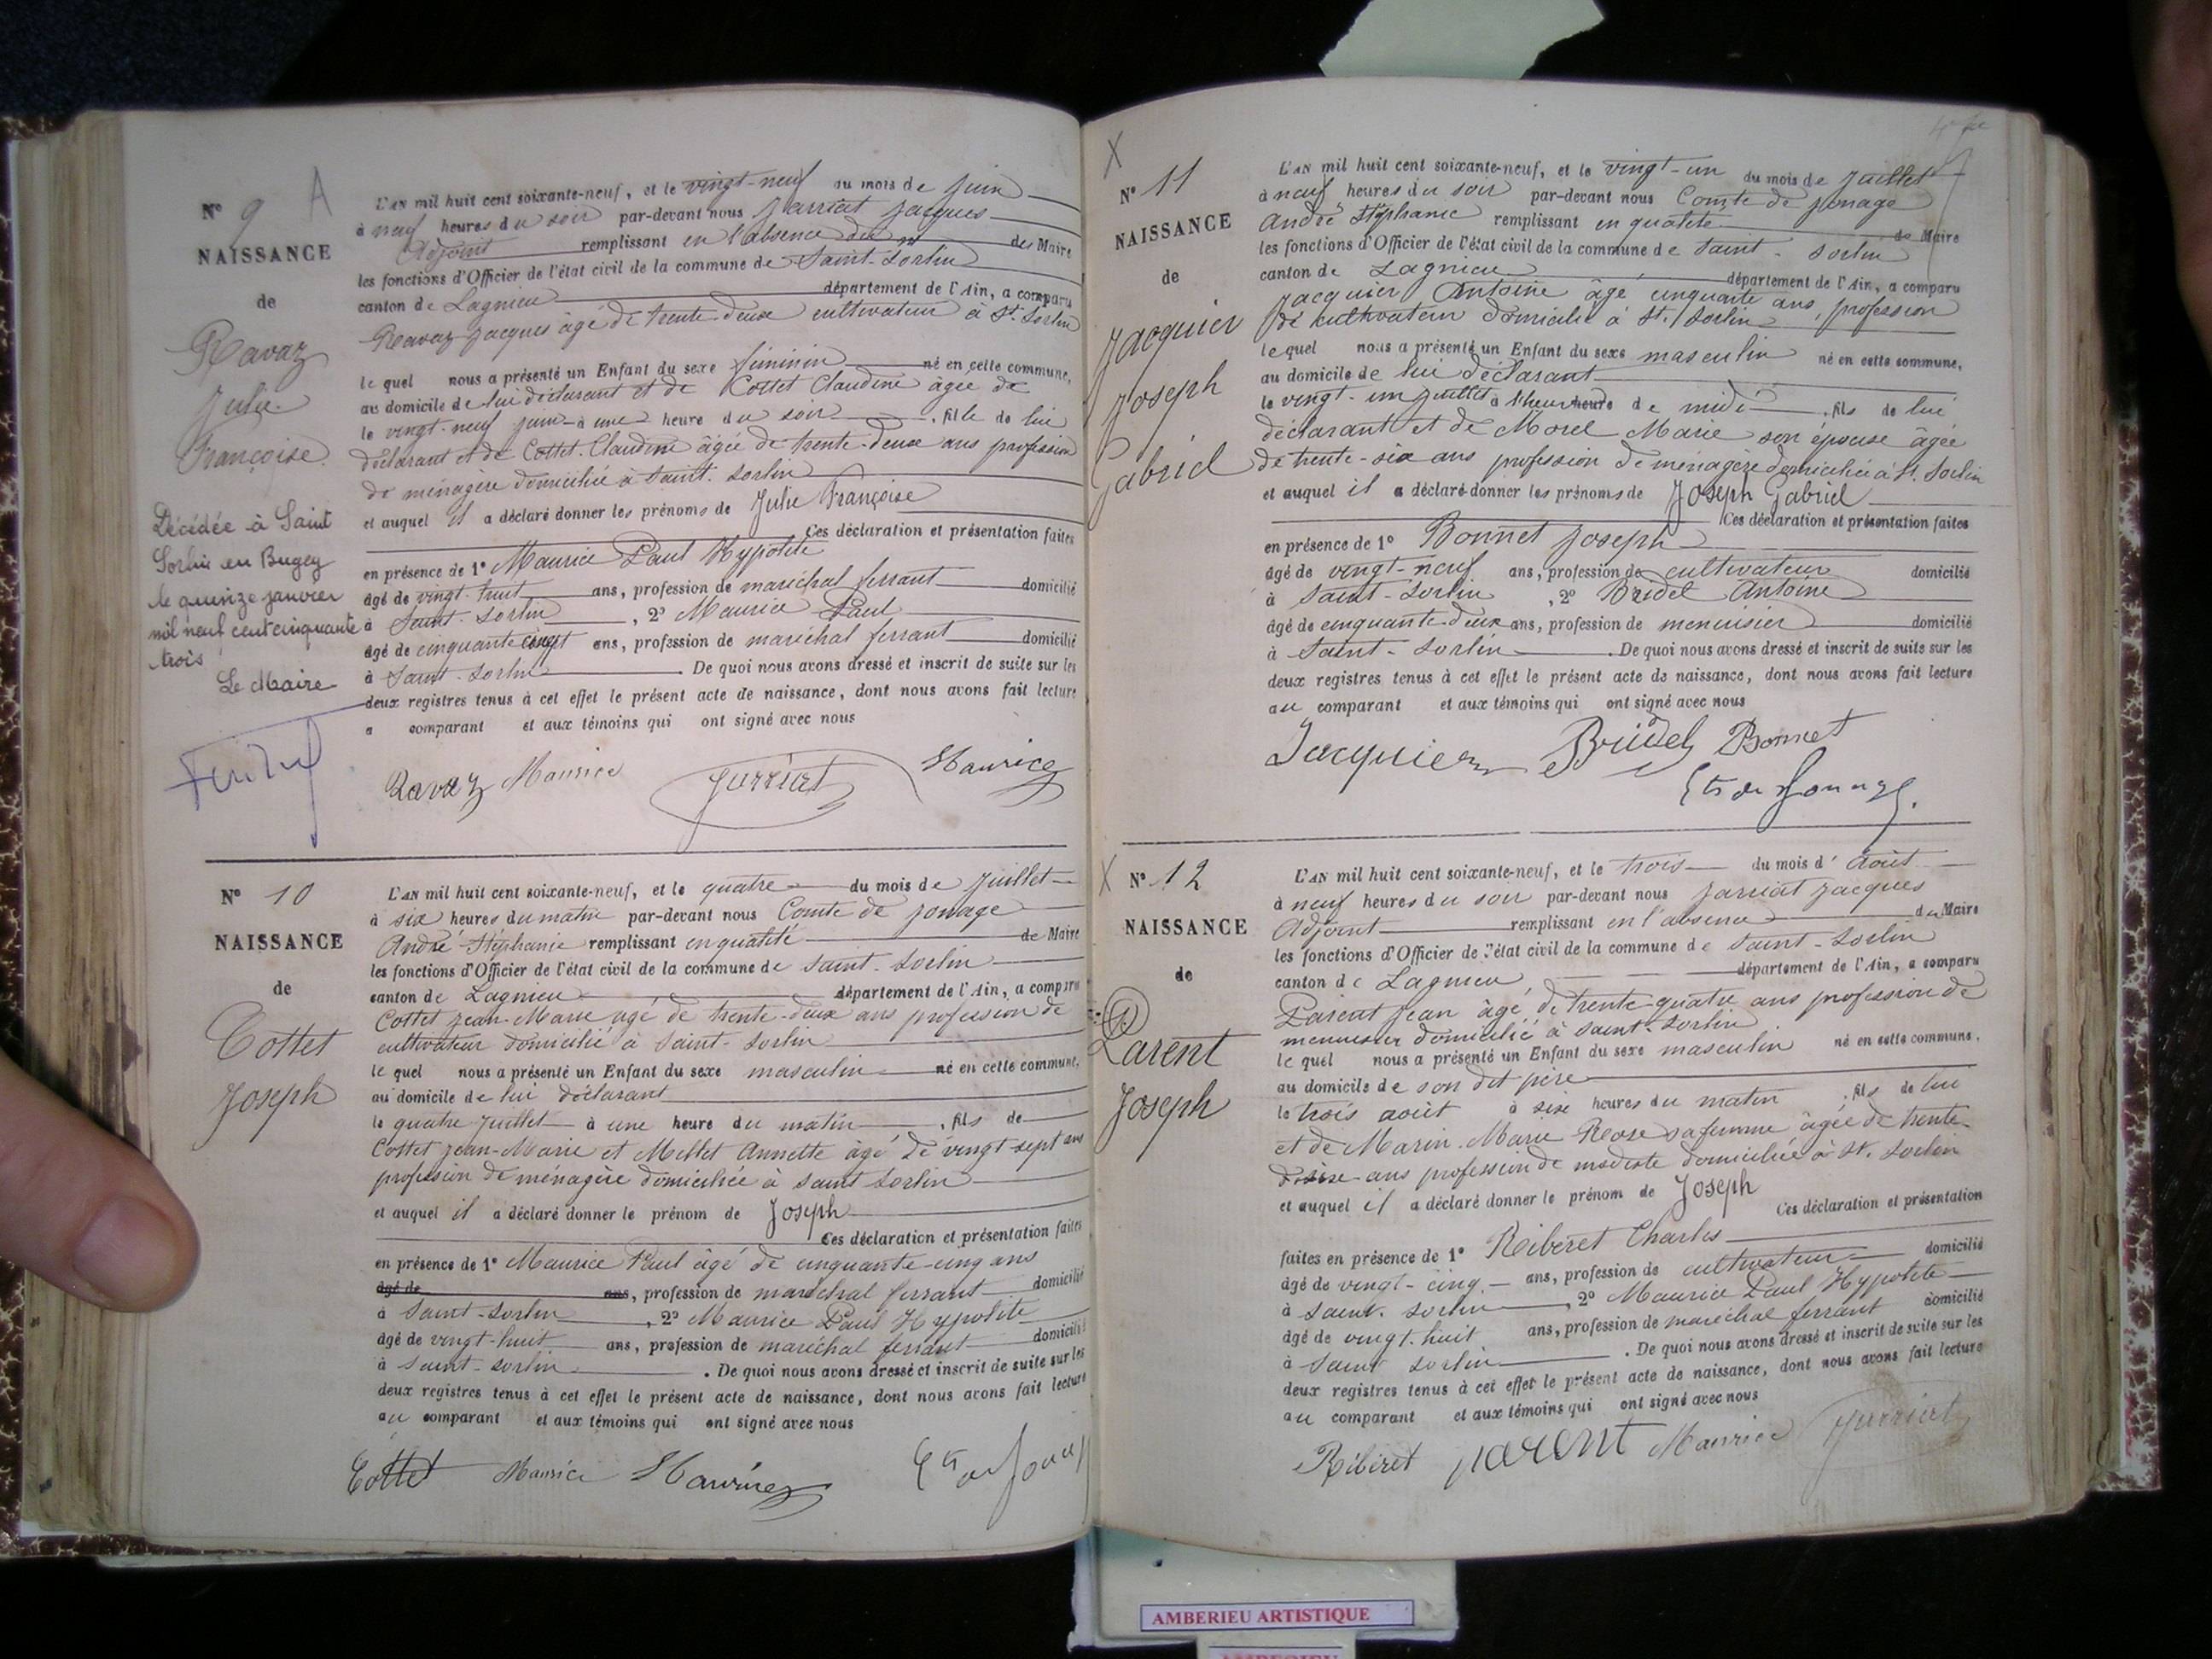 N° 9 A
NAISSANCE
de
Ravaz
Julie
Françoise
Décédée à Saint
Sorlin en Bugey
le quinze janvier
mil neuf cent cinquante
trois
Le Maire
L'AN mil huit cent soixante-neuf, et le vingt-neuf du mois de juin
à neuf heures du soir par-devant nous Jarriat Jacques
Adjoint remplissant en l'absence du des Maire
les fonctions d'Officier de l'état civil de la commune de Saint-Sorlin
canton de Lagnieu département de l'Ain, a comparu
Ravaz Jacques âgé de trente-deux cultivateur à St. Sorlin
le quel nous a présenté un Enfant du sexe féminin né en cette commune,
au domicile de lui déclarant et de Cottet Claudine âgée de
le vingt-neuf juin à une heure du soir, fille de lui
déclarant et de Cottet Claudine âgée de trente-deux ans profession
de ménagère domiciliée à Saint-Sorlin
et auquel il a déclaré donner les prénoms de Julie Françoise
Ces déclaration et présentation faites
en présence de 1° Maurice Paul Hypolite
âgé de vingt-huit ans, profession de maréchal ferrant domicilié
à Saint-Sorlin, 2° Maurice Paul
âgé de cinquante cinq ans, profession de maréchal ferrant domicilié
à Saint-Sorlin. De quoi nous avons dressé et inscrit de suite sur les
deux registres tenus à cet effet le présent acte de naissance, dont nous avons fait lecture
a comparant et aux témoins qui ont signé avec nous
Ravaz Maurice Jarriat Maurice
N° 10
NAISSANCE
de
Cottet
Joseph
L'AN mil huit cent soixante-neuf, et le quatre du mois de juillet
à six heures du matin par-devant nous Comte de Jonage
André-Stéphanie remplissant en qualité de Maire
les fonctions d'Officier de l'état civil de la commune de Saint-Sorlin
canton de Lagnieu département de l'Ain, a comparu
Cottet Jean-Marie âgé de trente-deux ans profession de
cultivateur domicilié à Saint-Sorlin
le quel nous a présenté un Enfant du sexe masculin né en cette commune,
au domicile de lui déclarant
le quatre juillet à une heure du matin, fils de
Cottet Jean-Marie et Mellet Annette âgé de vingt-sept ans
profession de ménagère domiciliée à Saint Sorlin
et auquel il a déclaré donner le prénom de Joseph
Ces déclaration et présentation faites
en présence de 1° Maurice Paul âgé de cinquante-cinq ans
âgé de ans, profession de maréchal ferrant domicilié
à Saint-Sorlin, 2° Maurice Paul Hypolite
âgé de vingt-huit ans, profession de maréchal ferrant domicilié
à Saint-Sorlin. De quoi nous avons dressé et inscrit de suite sur les
deux registres tenus à cet effet le présent acte de naissance, dont nous avons fait lecture
au comparant et aux témoins qui ont signé avec nous
Cottet Maurice Maurice Cte de Jonage
X
N° 11
NAISSANCE
de
Jacquier
Joseph
Gabriel
L'AN mil huit cent soixante-neuf, et le vingt-un du mois de juillet
à neuf heures du soir par-devant nous Comte de Jonage
André Stéphanie remplissant en qualité de Maire
les fonctions d'Officier de l'état civil de la commune de Saint-Sorlin
canton de Lagnieu département de l'Ain, a comparu
Jacquier Antoine âgé cinquante ans, profession
de cultivateur domicilié à St. Sorlin
le quel nous a présenté un Enfant du sexe masculin né en cette commune,
au domicile de lui déclarant
le vingt-un juillet à l'heure heure de midi, fils de lui
déclarant et de Morel Marie son épouse âgée
de trente-six ans profession de ménagère domiciliée à St. Sorlin
et auquel il a déclaré donner les prénoms de Joseph Gabriel
Ces déclaration et présentation faites
en présence de 1° Bonnet Joseph
âgé de vingt-neuf ans, profession de cultivateur domicilié
à Saint-Sorlin, 2° Bridel Antoine
âgé de cinquante-deux ans, profession de menuisier domicilié
à Saint-Sorlin. De quoi nous avons dressé et inscrit de suite sur les
deux registres tenus à cet effet le présent acte de naissance, dont nous avons fait lecture
au comparant et aux témoins qui ont signé avec nous
Jacquier Bridel Bonnet
Cte de Jonage.
X N° 12
NAISSANCE
de
Parent
Joseph
L'AN mil huit cent soixante-neuf, et le trois du mois d'août
à neuf heures du soir par-devant nous Jarriat Jacques
Adjoint remplissant en l'absence du Maire
les fonctions d'Officier de l'état civil de la commune de Saint-Sorlin
canton de Lagnieu département de l'Ain, a comparu
Parent Jean âgé de trente-quatre ans profession de
menuisier domicilié à Saint-Sorlin
le quel nous a présenté un Enfant du sexe masculin né en cette commune,
au domicile de son dit père
le trois août à six heures du matin, fils de lui
et de Marin Marie Rose sa femme âgée de trente-
ans profession de modiste domiciliée à St. Sorlin
et auquel il a déclaré donner le prénom de Joseph
Ces déclaration et présentation
faites en présence de 1° Ribéret Charles
âgé de vingt-cinq ans, profession de cultivateur domicilié
à Saint-Sorlin, 2° Maurice Paul Hypolite
âgé de vingt-huit ans, profession de maréchal ferrant domicilié
à Saint Sorlin. De quoi nous avons dressé et inscrit de suite sur les
deux registres tenus à cet effet le présent acte de naissance, dont nous avons fait lecture
au comparant et aux témoins qui ont signé avec nous
Ribéret parent Maurice Jarriat
AMBERIEU ARTISTIQUE